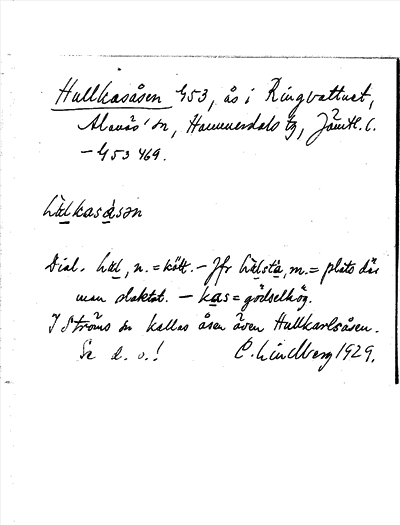 Hullkasåsen 453, ås i Ringvattnet,
Alanäs' sn, Hammerdals tg, Jämtl. l.
– 453 469.
hùlkasàsǝn
Dial. hul, n. = kött. – Jfr hùlstà, m. = plats där
man slaktat. – kas = gödselhög.
I Ströms sn kallas åsen även Hullkarlsåsen.
Se d. o.! C. Lindberg 1929.